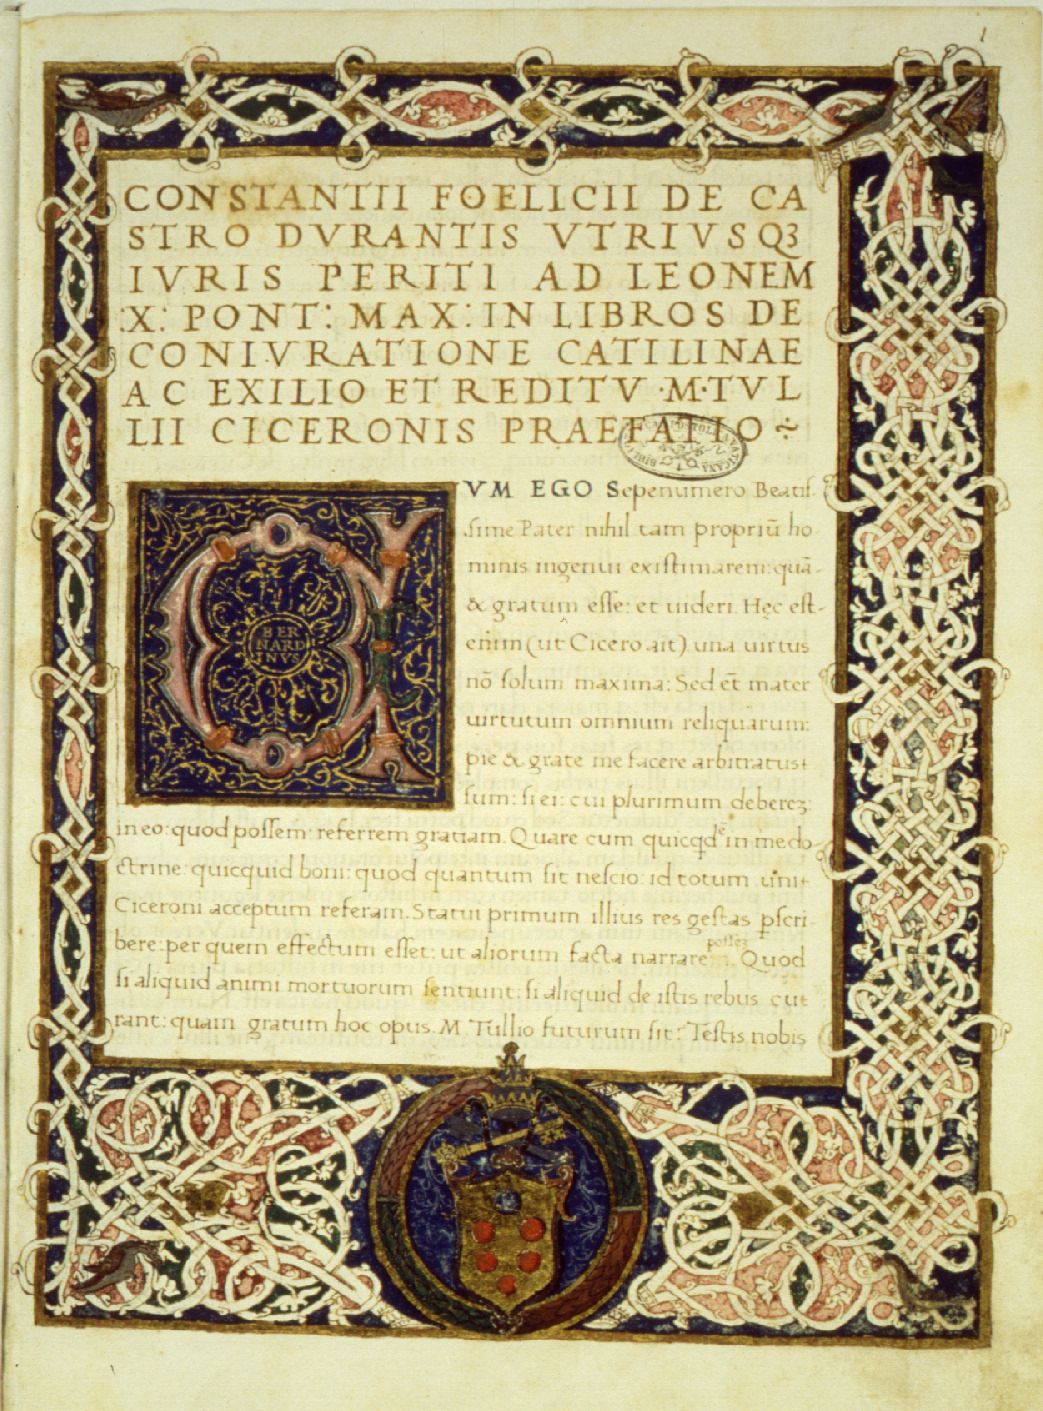 1
CONSTANTII FOELICII DE CA
STRO DVRANTIS VTRIVSQ3
IVRIS PERITI AD LEONEM
.X: PONT: MAX: IN LIBROS DE
CONIVRATIONE CATILINAE
AC EXILIO ET REDITV ·M·TVL
LII CICERONIS PRAEFATIO
BER
NARD
INVS
VM EGO Sepenumero Beatis.
sime Pater nihil tam propriũ ho
minis ingenui existimarem: quã
& gratum esse: et uideri. Hęc est
enim (ut Cicero ait) una uirtus
nõ solum maxima: Sed eẽ mater
uirtutum omnium reliquarum:
pie & grate me facere arbitratus
sum: si ei: cui plurimum deberez
in eo: quod possem: referrem gratiam. Quare cum quicqd in me do
ctrine: quicquid boni: quod quantum sit nescio: id totum uni
Ciceroni acceptum referam. Statui primum illius res gestas pscri
bere: per quem effectum esset: ut aliorum facta narrare possez. Quod
si aliquid animi mortuorum sentiunt: si aliquid de istis rebus cu
rant: quam gratum hoc opus. M. Tullio futurum sit: Testis nobis